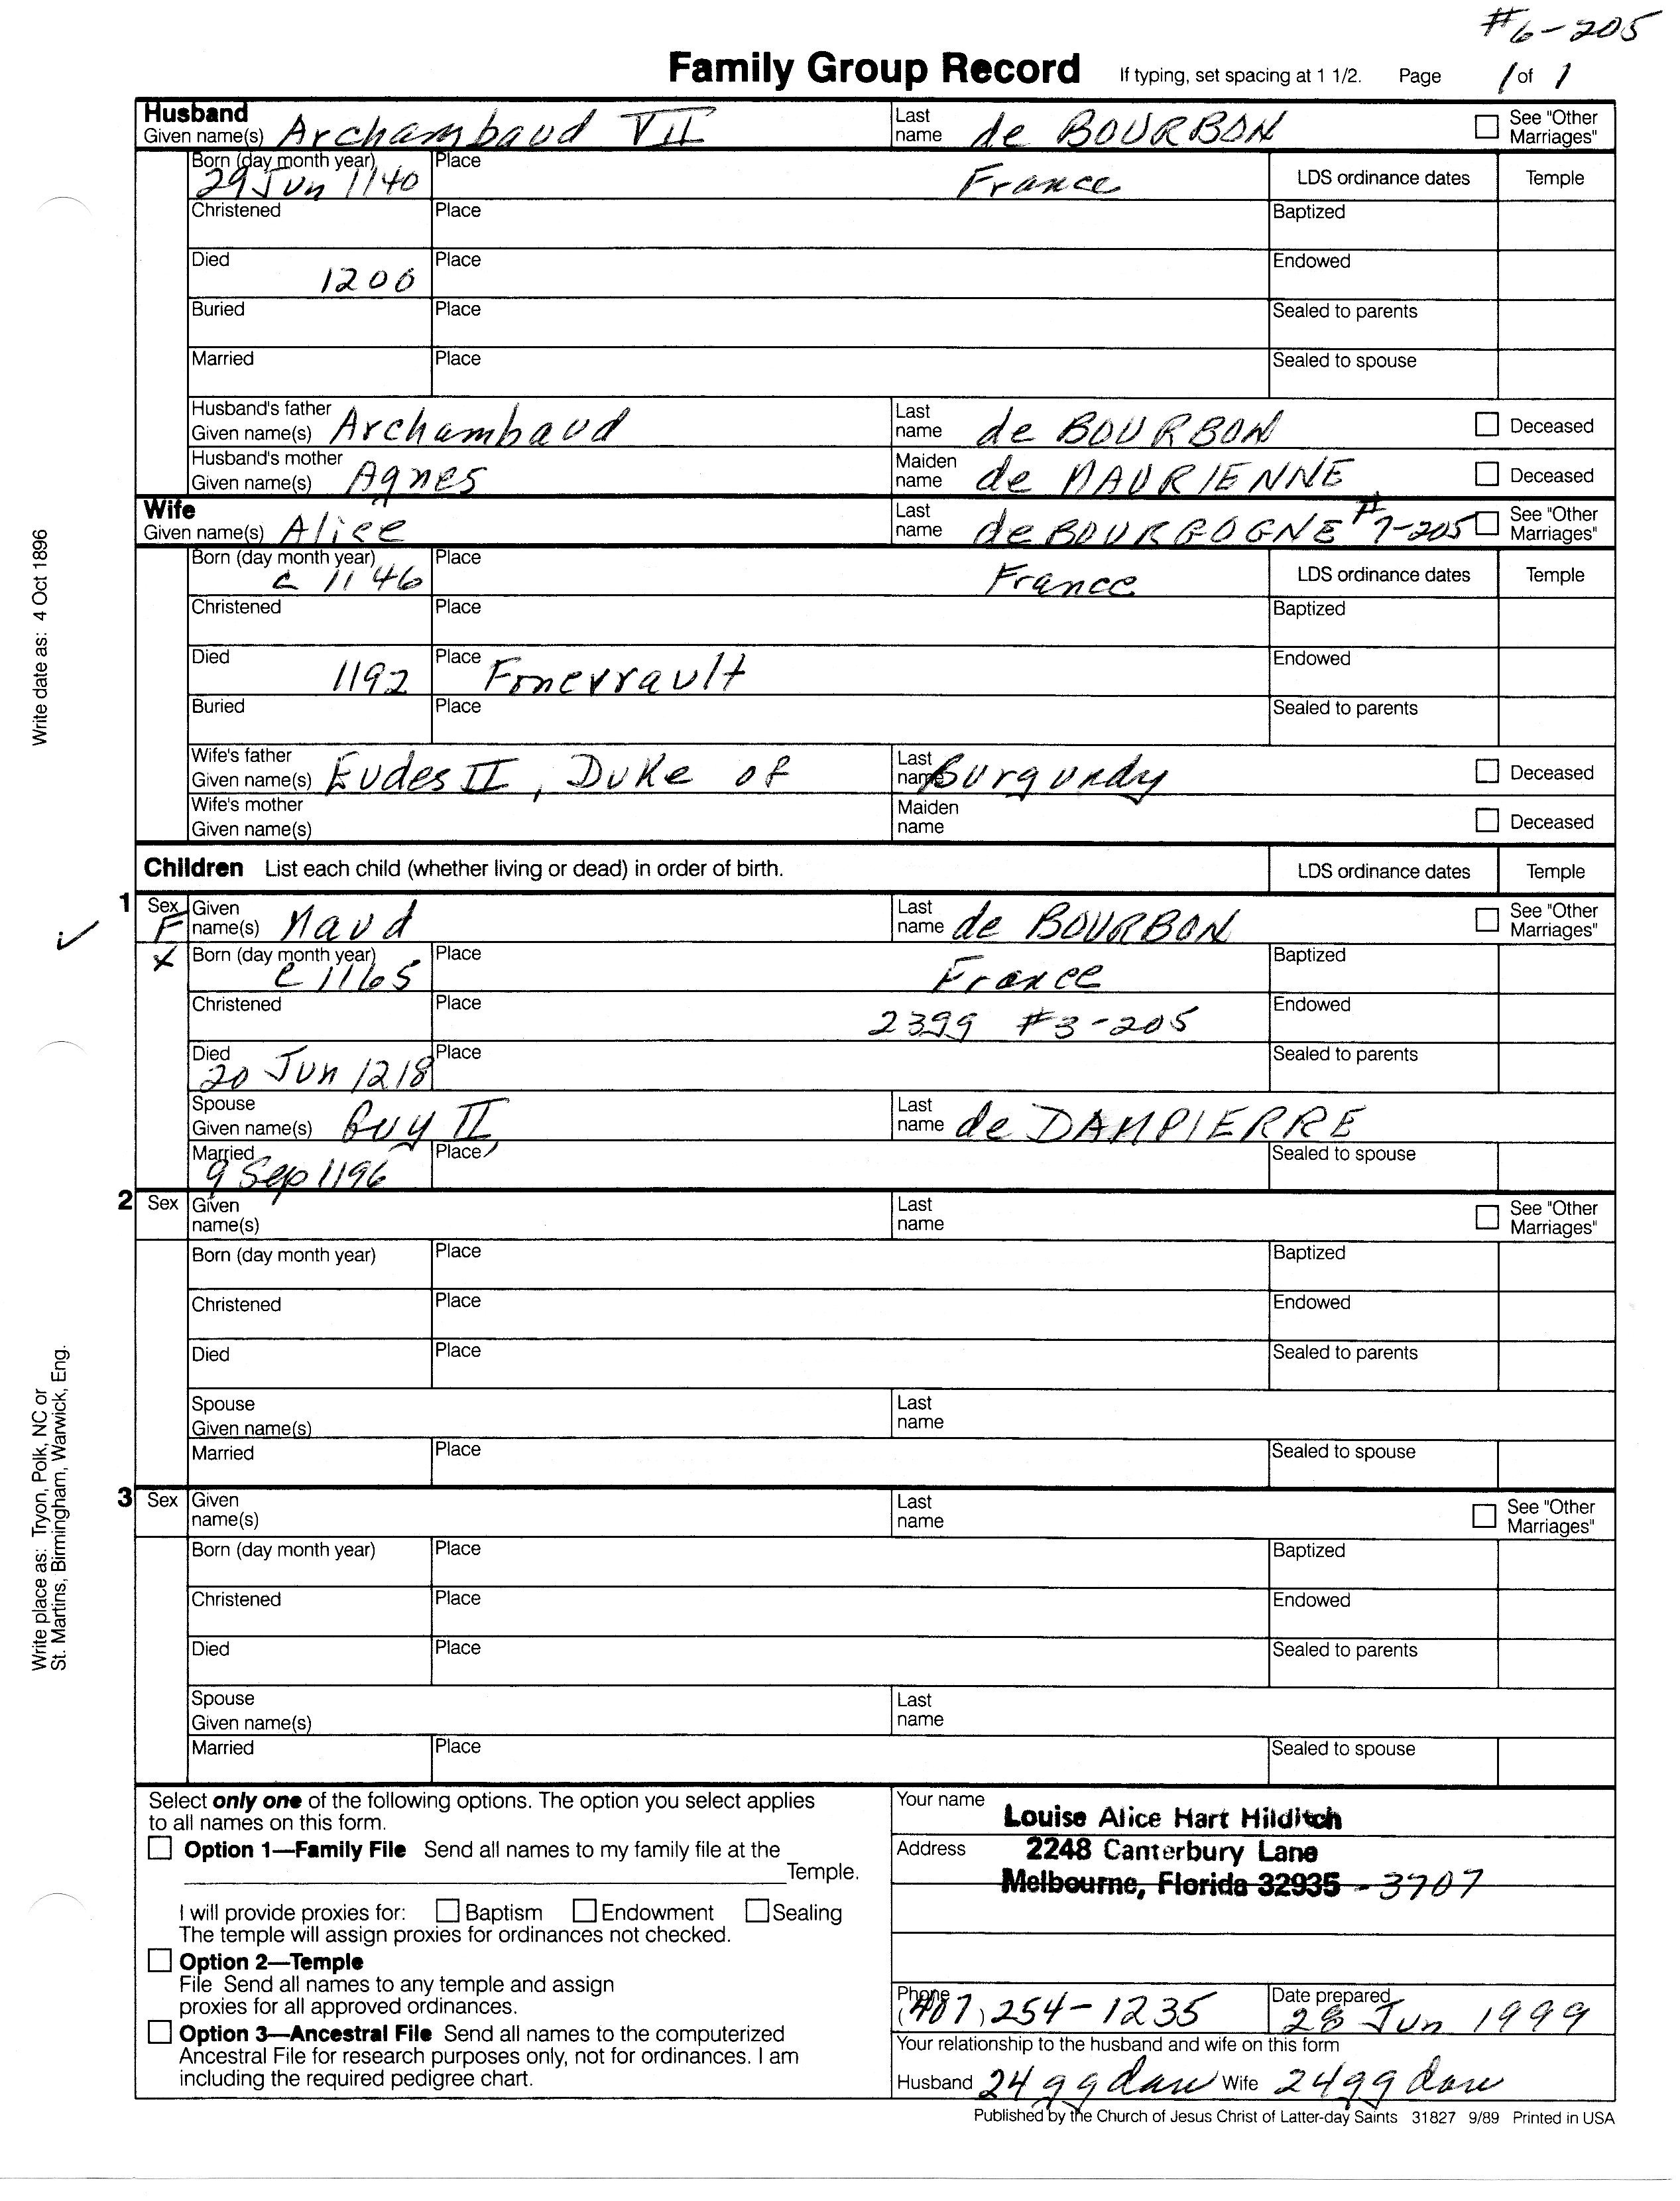 #6-205
Family Group Record If typing, set spacing at 1 1/2. Page 1 of 1
Husband
Given name(s) Archambaud VII Last name de BOURBON See "Other Marriages"
Born (day month year) 29 Jun 1140 Place France LDS ordinance dates Temple
Christened Place Baptized
Died 1200 Place Endowed
Buried Place Sealed to parents
Married Place Sealed to spouse
Husband's father Given name(s) Archambaud Last name de BOURBON Deceased
Husband's mother Given name(s) Agnes Maiden name de MAURIENNE Deceased
Wife
Given name(s) Alice Last name de BOURGOGNE #7-205 See "Other Marriages"
Born (day month year) c 1146 Place France LDS ordinance dates Temple
Christened Place Baptized
Died 1192 Place Fonevrault Endowed
Buried Place Sealed to parents
Wife's father Given name(s) Eudes II, Duke of Last name Burgundy Deceased
Wife's mother Given name(s) Maiden name Deceased
Children List each child (whether living or dead) in order of birth. LDS ordinance dates Temple
1 Sex F Given name(s) Maud Last name de BOURBON See "Other Marriages"
X Born (day month year) c 1165 Place France Baptized
Christened Place 2399 #3-205 Endowed
Died 20 Jun 1218 Place Sealed to parents
Spouse Given name(s) Guy II Last name de DAMPIERRE
Married 9 Sep 1196 Place Sealed to spouse
2 Sex Given name(s) Last name See "Other Marriages"
Born (day month year) Place Baptized
Christened Place Endowed
Died Place Sealed to parents
Spouse Given name(s) Last name
Married Place Sealed to spouse
3 Sex Given name(s) Last name See "Other Marriages"
Born (day month year) Place Baptized
Christened Place Endowed
Died Place Sealed to parents
Spouse Given name(s) Last name
Married Place Sealed to spouse
Write date as: 4 Oct 1896
Write place as: Tryon, Polk, NC or
St. Martins, Birmingham, Warwick, Eng.
Select only one of the following options. The option you select applies
to all names on this form.
Option 1—Family File Send all names to my family file at the
Temple.
I will provide proxies for: Baptism Endowment Sealing
The temple will assign proxies for ordinances not checked.
Option 2—Temple
File Send all names to any temple and assign
proxies for all approved ordinances.
Option 3—Ancestral File Send all names to the computerized
Ancestral File for research purposes only, not for ordinances. I am
including the required pedigree chart.
Your name Louise Alice Hart Hilditch
Address 2248 Canterbury Lane
Melbourne, Florida 32935-3707
Phone (407) 254-1235 Date prepared 28 Jun 1999
Your relationship to the husband and wife on this form
Husband 24 gg dau Wife 24 gg dau
Published by the Church of Jesus Christ of Latter-day Saints 31827 9/89 Printed in USA